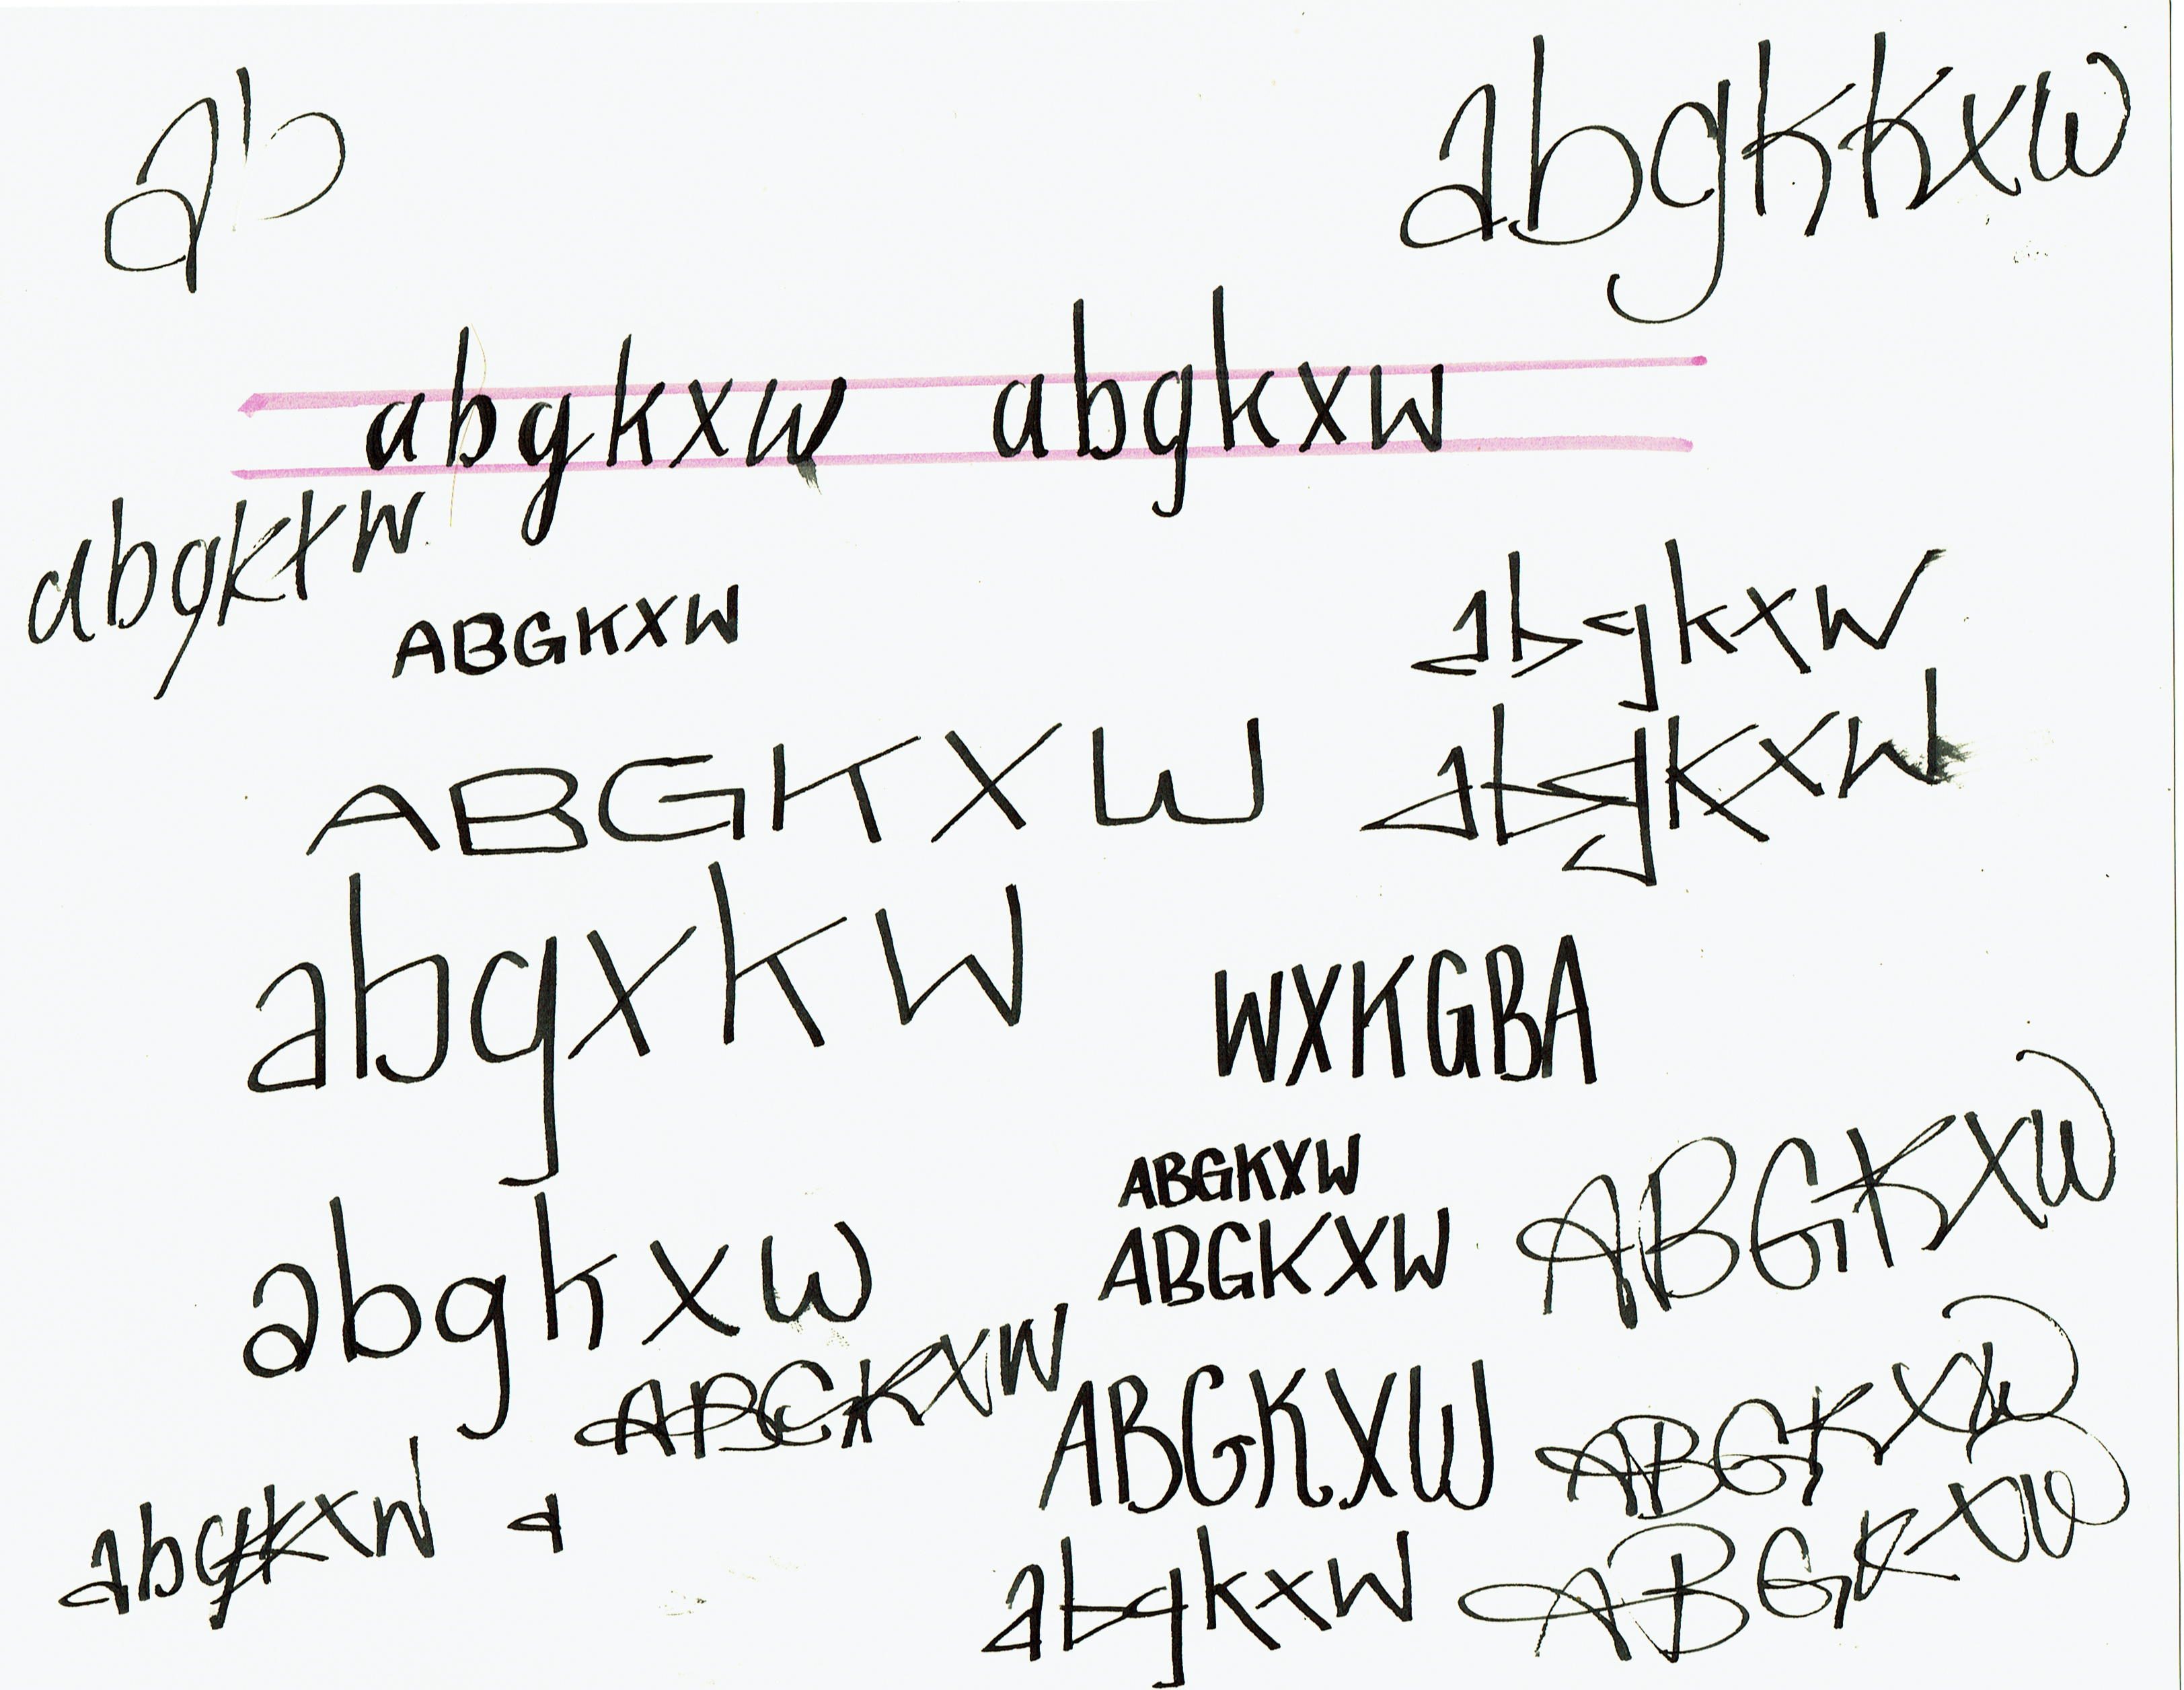 ab
abgkkxw
abgkxw abgkxw
abgkxw
ABGKXW
abgkxw
ABGKXW
abgkxw
abgxkw
WXKGBA
ABGKXW
ABGKXW
ABGKXW
abgkxw
ABGKXW
ABGKXW
ABGKXW
abgkxw
a
abgkxw
ABGKXW